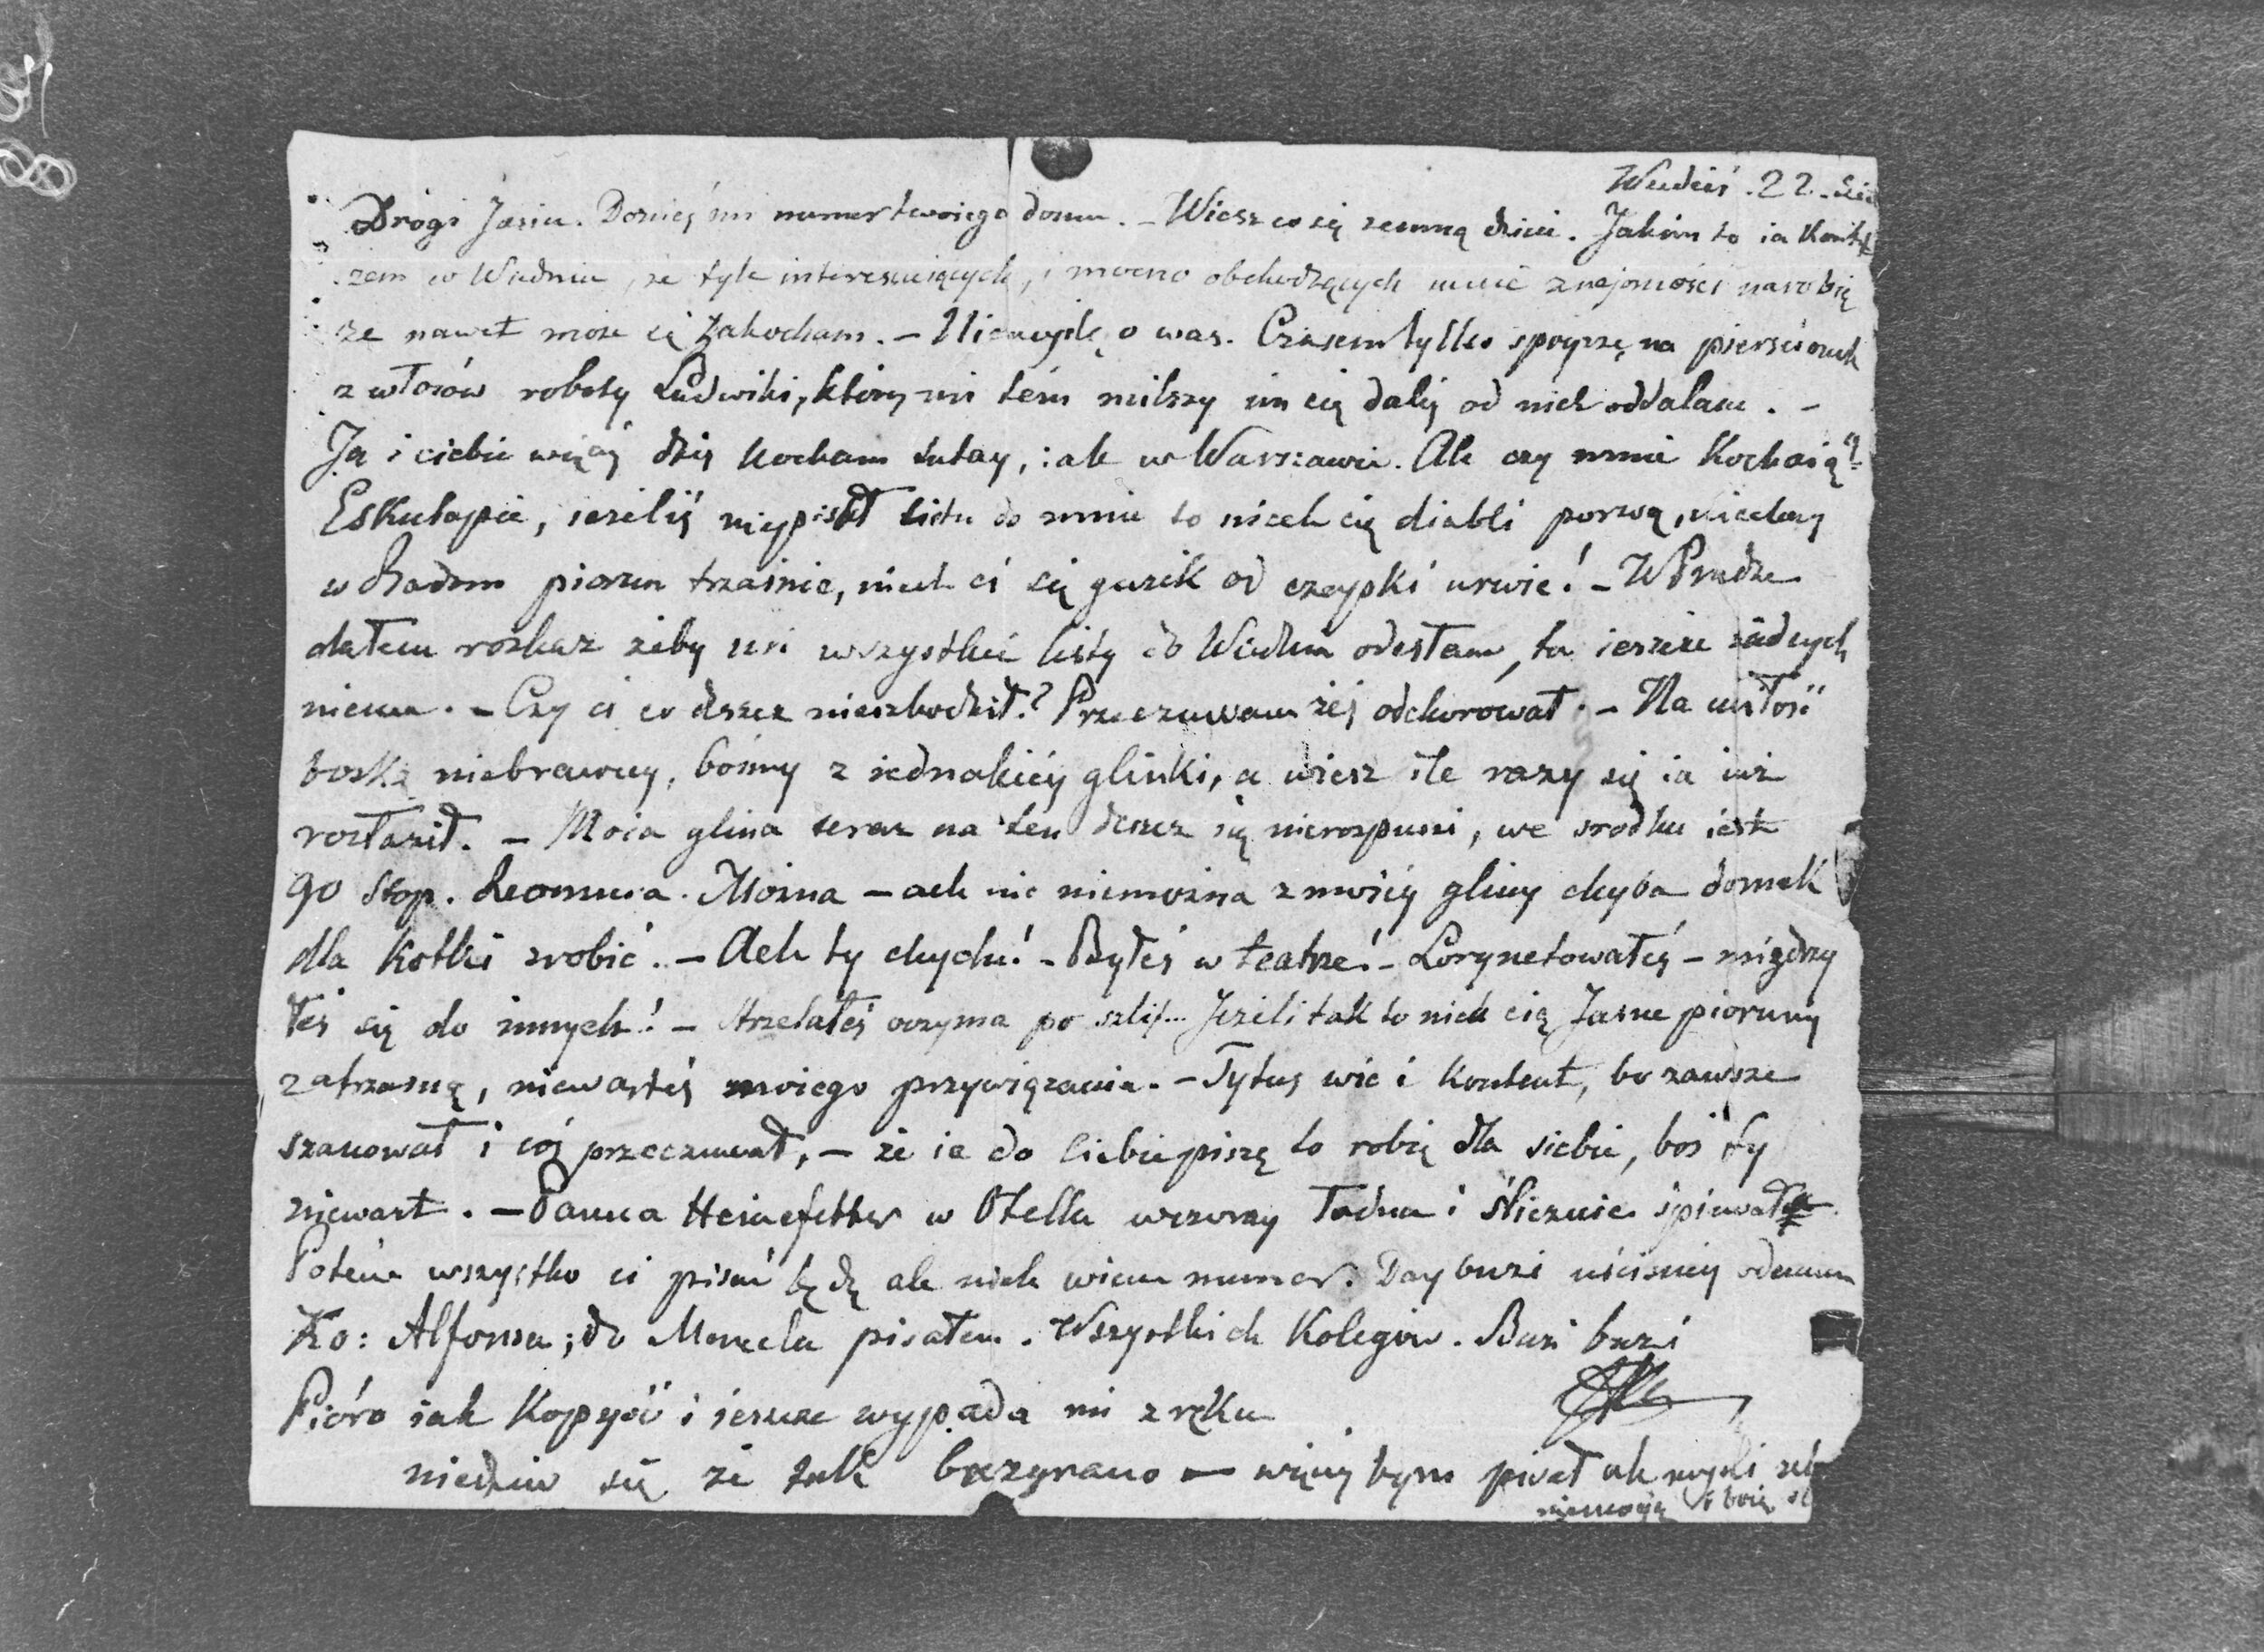 Wiedeń. 22.
Drogi Jasiu. Donieś mi numer twoiego domu. – Wiesz co się zemną dzieie. Jakim to ia kontent
żem w Wiedniu, że tyle interessuiących, i mocno obchodzących mnie znajomości narobię
że nawet może się zakocham. – Niemyślę o was. Czasem tylko spoyrzę na pierścionek
z włosów roboty Ludwiki, który mi tém milszy im się daléj od nich oddalam. –
Ja i ciebie więcéj dziś kocham tutay, iak w Warszawie. Ale czy mnie kochaią?
Eskulapie, ieżeliś niepisał listu do mnie to niech cię diabli porwą, niechay
w Radom piorun trzaśnie, niech ci się guzik od czapki urwie! – W Pradze
dałem rozkaz żeby mi wszystkie listy do Wiednia odesłano, tu ieszcze żadnych
niema. – Czy ci co deszcz nieszkodził? Przeczuwam żeś odchorował. – Na miłość
boską niebrawuy, bośmy z iednakiéy glinki, a wiesz ile razy się ia iuż
rozłaził. – Moia glina teraz na ten deszcz się nierozpuści, we srodku iest
90 stop. Reomiura. Można – ach nic niemożna z moiéy gliny chyba domek
dla kotki zrobić. – Ach ty chychu! – Byłeś w teatrze! – Lorynetowałeś – mizdrzy
łeś się do innych! – strzelałeś oczyma po szlif... Jeżeli tak to niech cię Jasne pioruny
zatrzasną, niewarteś moiego przywiązania. – Tytus wie i kontent, bo zawsze
szanował i coś przeczuwał, – że ia do Ciebie piszę to robię dla siebie, boś ty
niewart. – Panna Heinefetter w Otellu wczoray ładna i ślicznie śpiewała
Potém wszystko ci pisać będę ale niech wiem numer. Day buzi uściśniy odemn
Ko: Alfonsa; do Marcela pisałem. Wszystkich Kolegów. Buzi buzi
Pióro iak kopyść i ieszcze wypada mi z ręku
niedziw się że tak bazgrano – więcéy bym pisał ale myśli
niemogę